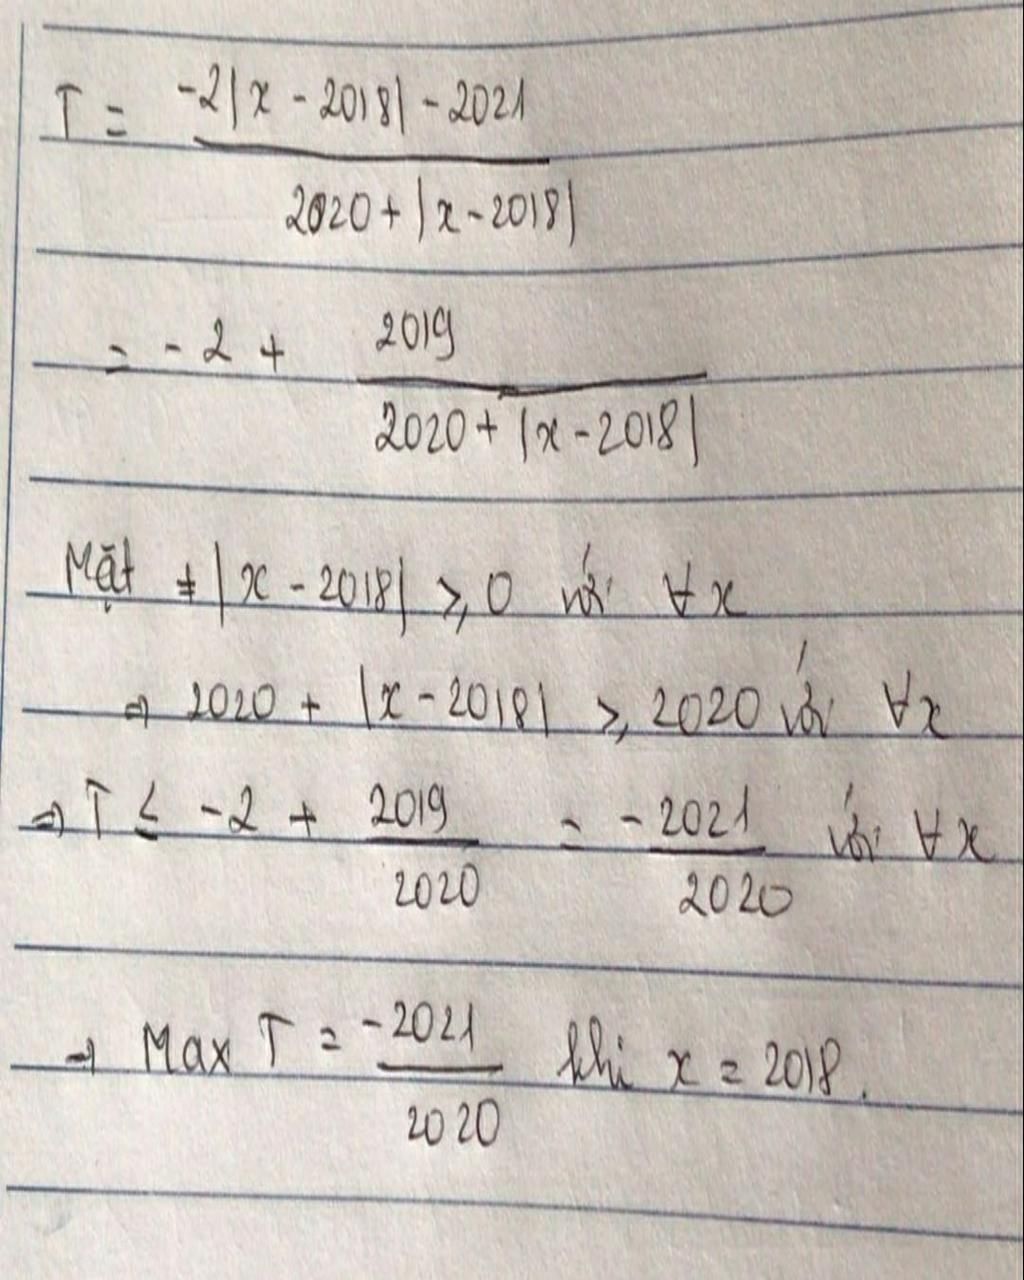 T = -2|x - 2018| - 2021 / 2020 + |x - 2018|
= -2 + 2019 / 2020 + |x - 2018|
Mặt ≠ |x - 2018| ≥ 0 với ∀x
⇒ 2020 + |x - 2018| ≥ 2020 với ∀x
⇒ T ≤ -2 + 2019 / 2020 = -2021 / 2020 với ∀x
⇒ Max T = -2021 / 2020 khi x = 2018.